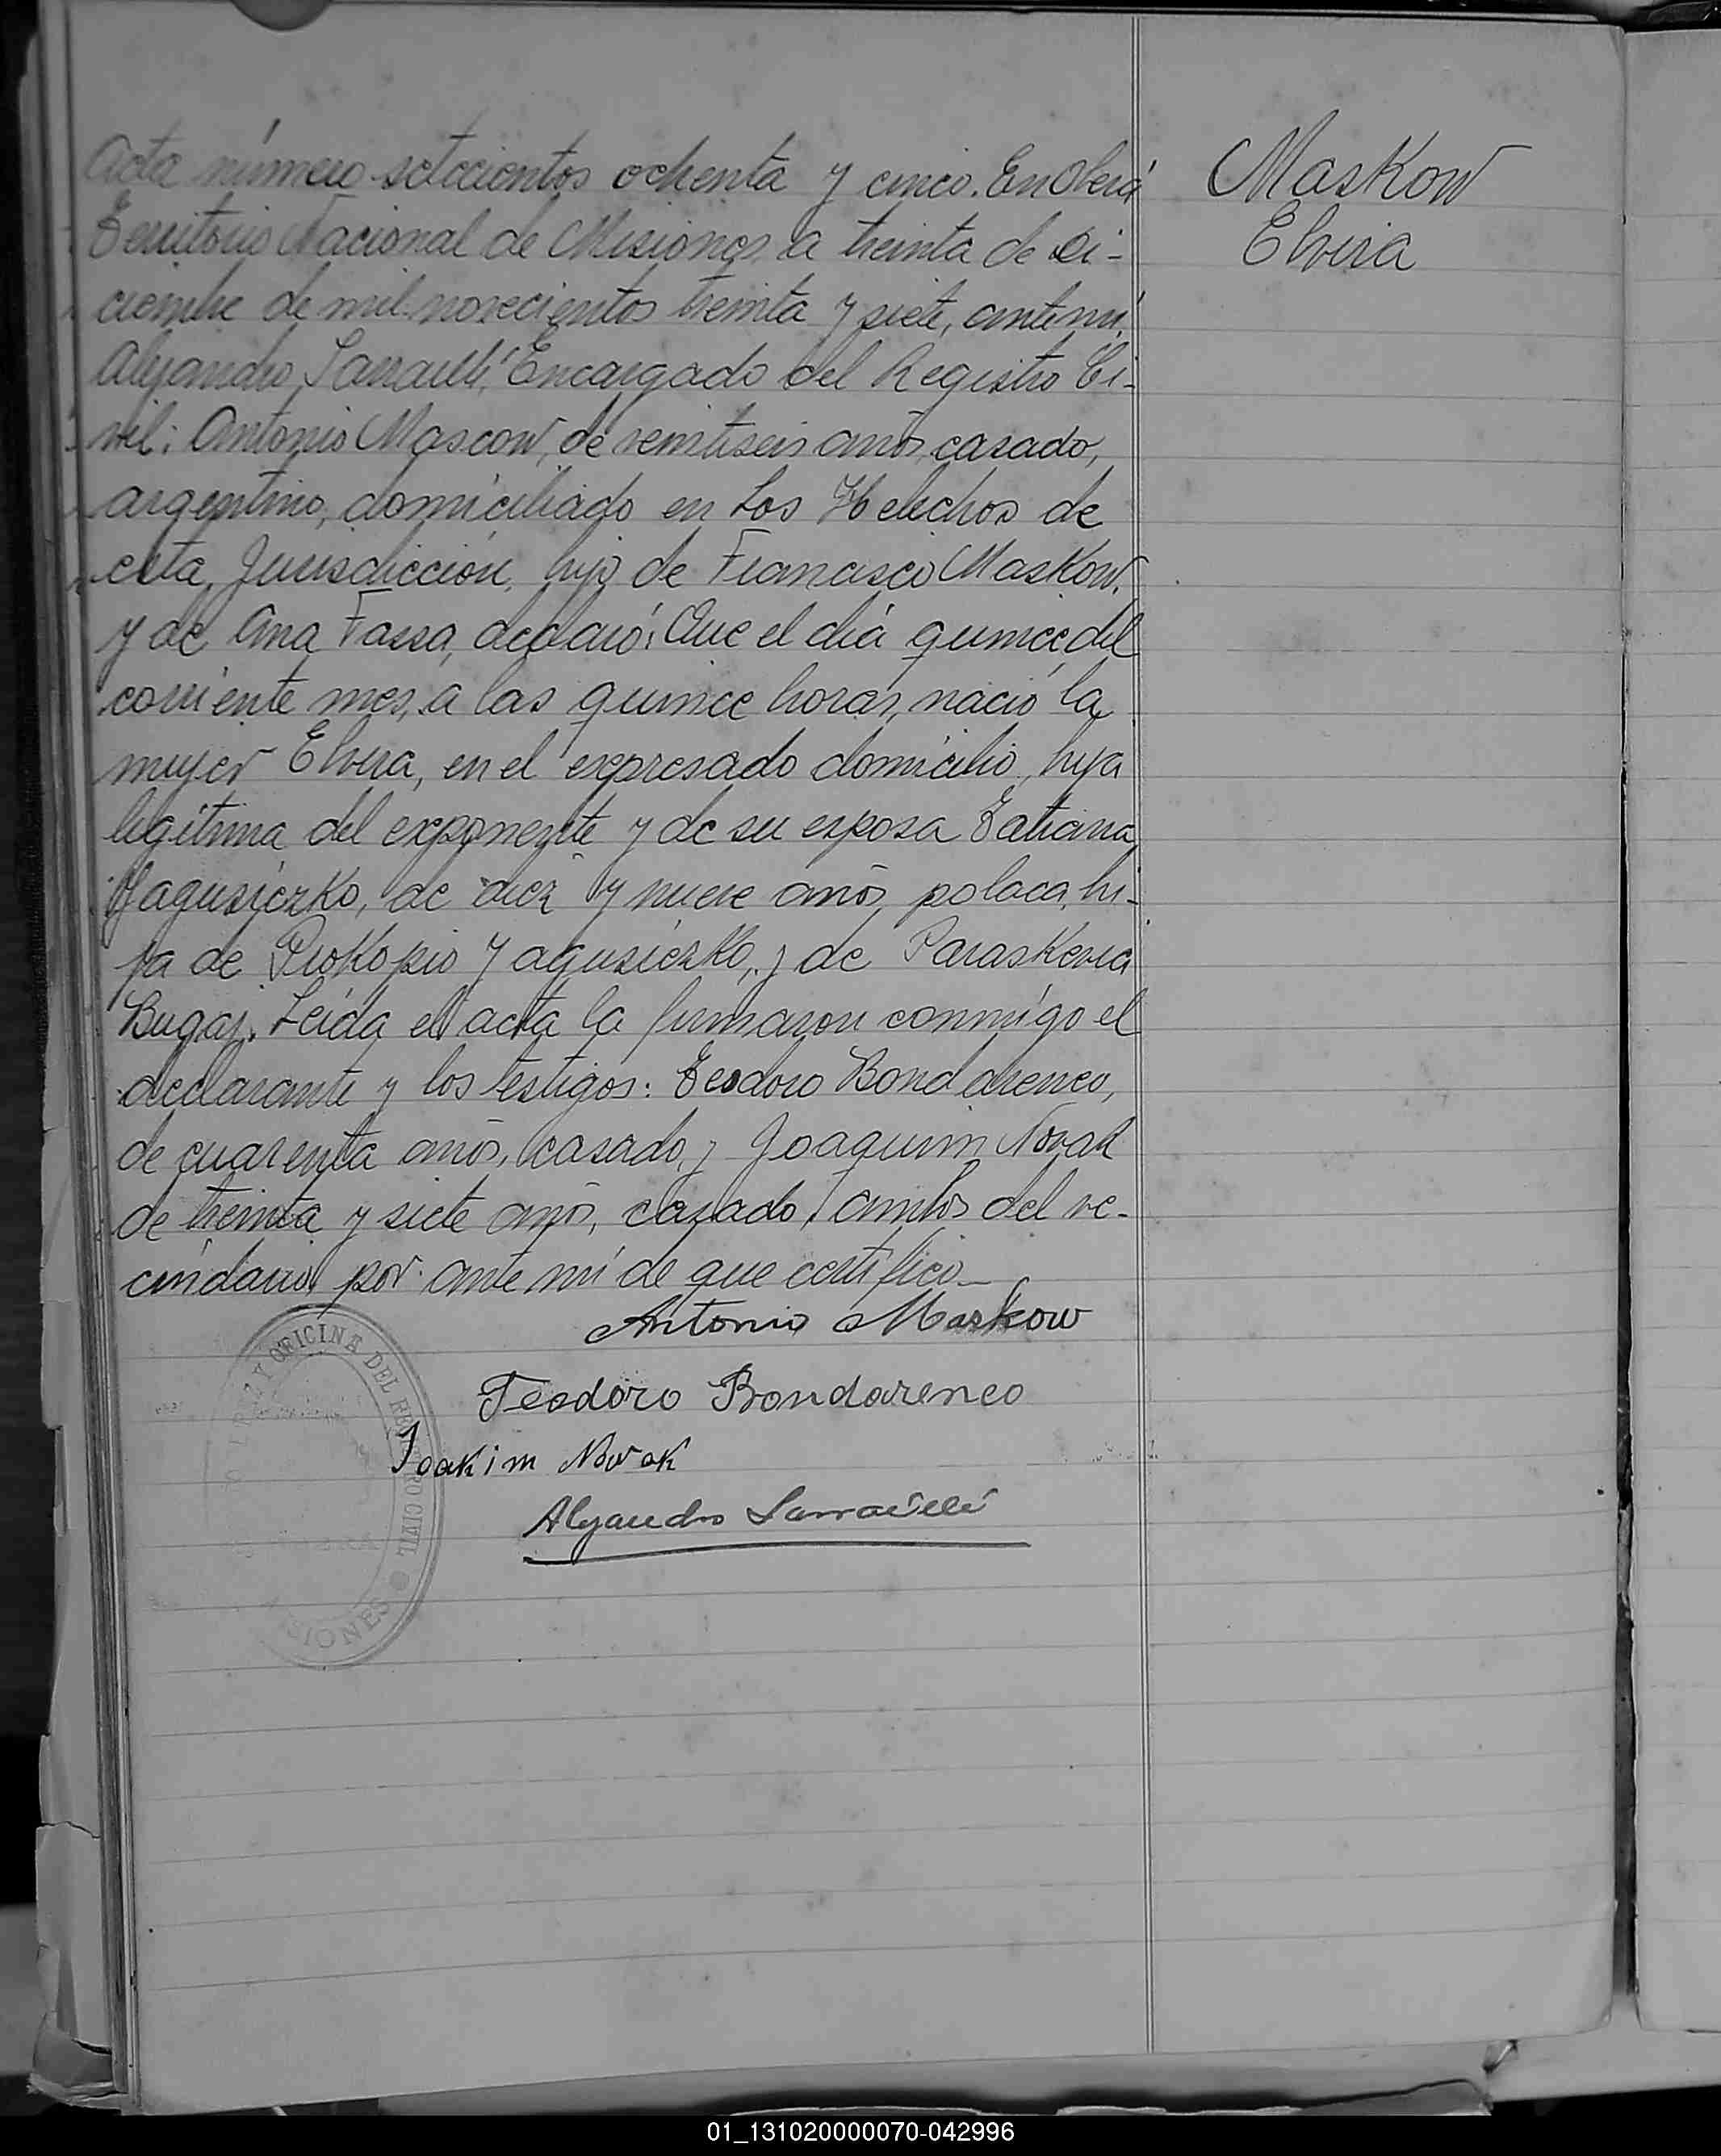 Acta número setecientos ochenta y cinco. En Oberá
Territorio Nacional de Misiones, a treinta de Di-
ciembre de mil novecientos treinta y siete, ante mi,
Alejandro Encargado del Registro Ci-
vil: Antonio Mascow, de veintiseis años, casado,
argentino, domiciliado en Los Helechos de
esta Jurisdicción, hijo de Francisco Maskow,
y de Ana Fassa, declaró: Que el día quince del
corriente mes, a las quince horas, nació la
mujer Elvira, en el expresado domicilio, hija
legítima del exponente y de su esposa Tatiana
Yagusieczko, de diez y nueve años, polaca, hi-
ja de Prokopio Yagusieczko, y de Paraskevia
Bugaj. Leida el acta la firmaron conmigo el
declarante y los testigos: Teodoro Bondarenco,
de cuarenta años, casado, y Joaquin Novak
de treinta y siete años, casado, ambos del ve-
cindario, por ante mí de que certifico_
Antonio Maskow
Teodoro Bondarenco
Joakim Novak
Alejandro
Maskow
Elvira
Y OFICINA DEL REGISTRO CIVIL
MISIONES
01_131020000070-042996